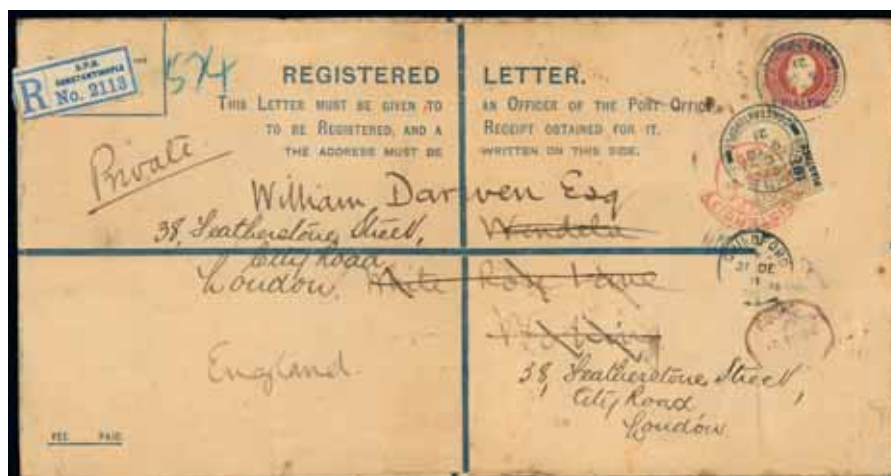 B.P.O.
CONSTANTINOPLE
R No. 2113
574
REGISTERED LETTER.
THIS LETTER MUST BE GIVEN TO AN OFFICER OF THE POST OFFICE
TO BE REGISTERED, AND A RECEIPT OBTAINED FOR IT.
THE ADDRESS MUST BE WRITTEN ON THIS SIDE.
Private
William Darwen Esq
38, Featherstone Street,
City Road
London,
England
GUILDFORD
31 DE
38, Featherstone Street,
City Road
London
FEE PAID